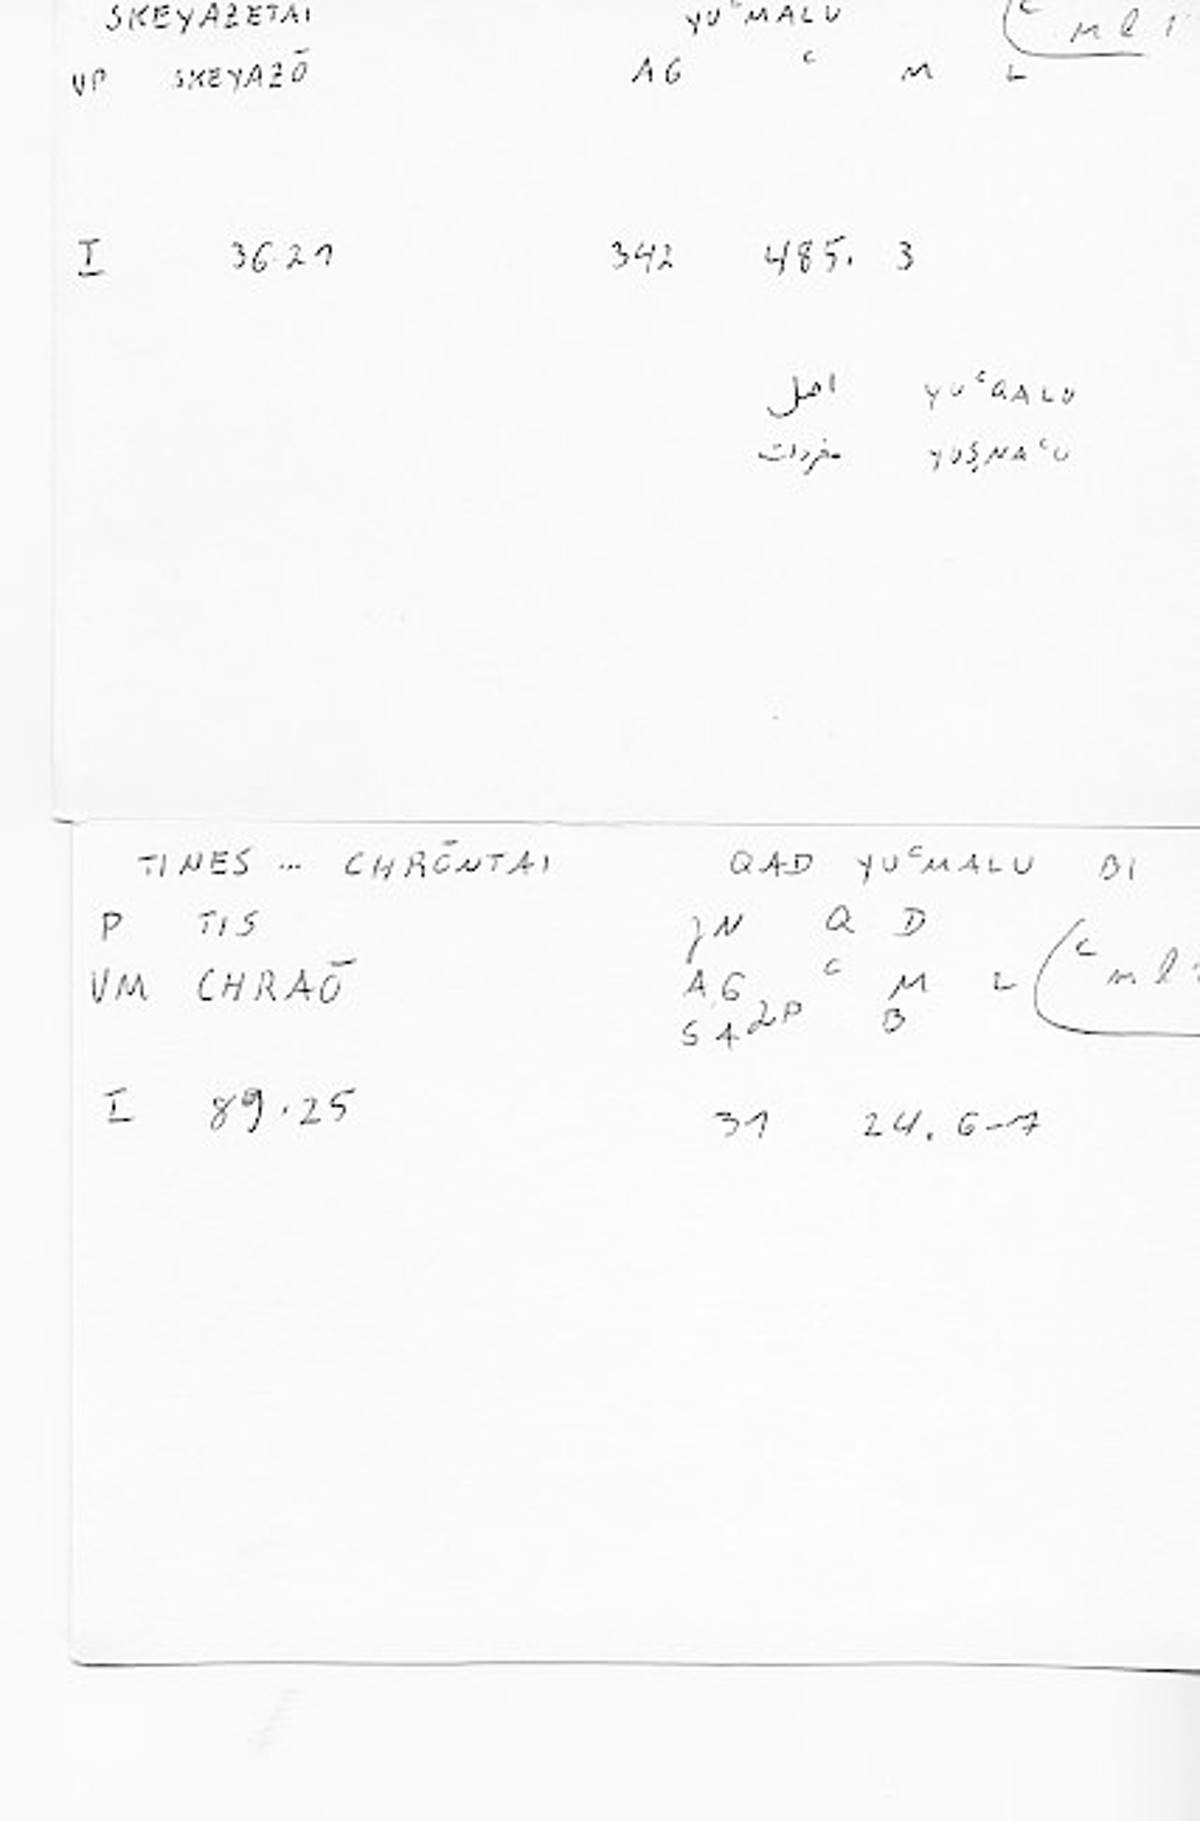 SKEYAZETAI YUᶜMALU
VP SKEYAZŌ AG ᶜ M L (ᶜ m l
I 36.21 342 485. 3
اصل YUᶜQALU
مفردات YUṢNAᶜU
TINES ... CHRŌNTAI QAD YUᶜMALU BI
P TIS N Q D
VM CHRAŌ AG ᶜ M L (ᶜ m l
SA 2P B
I 89.25 31 24. 6-7